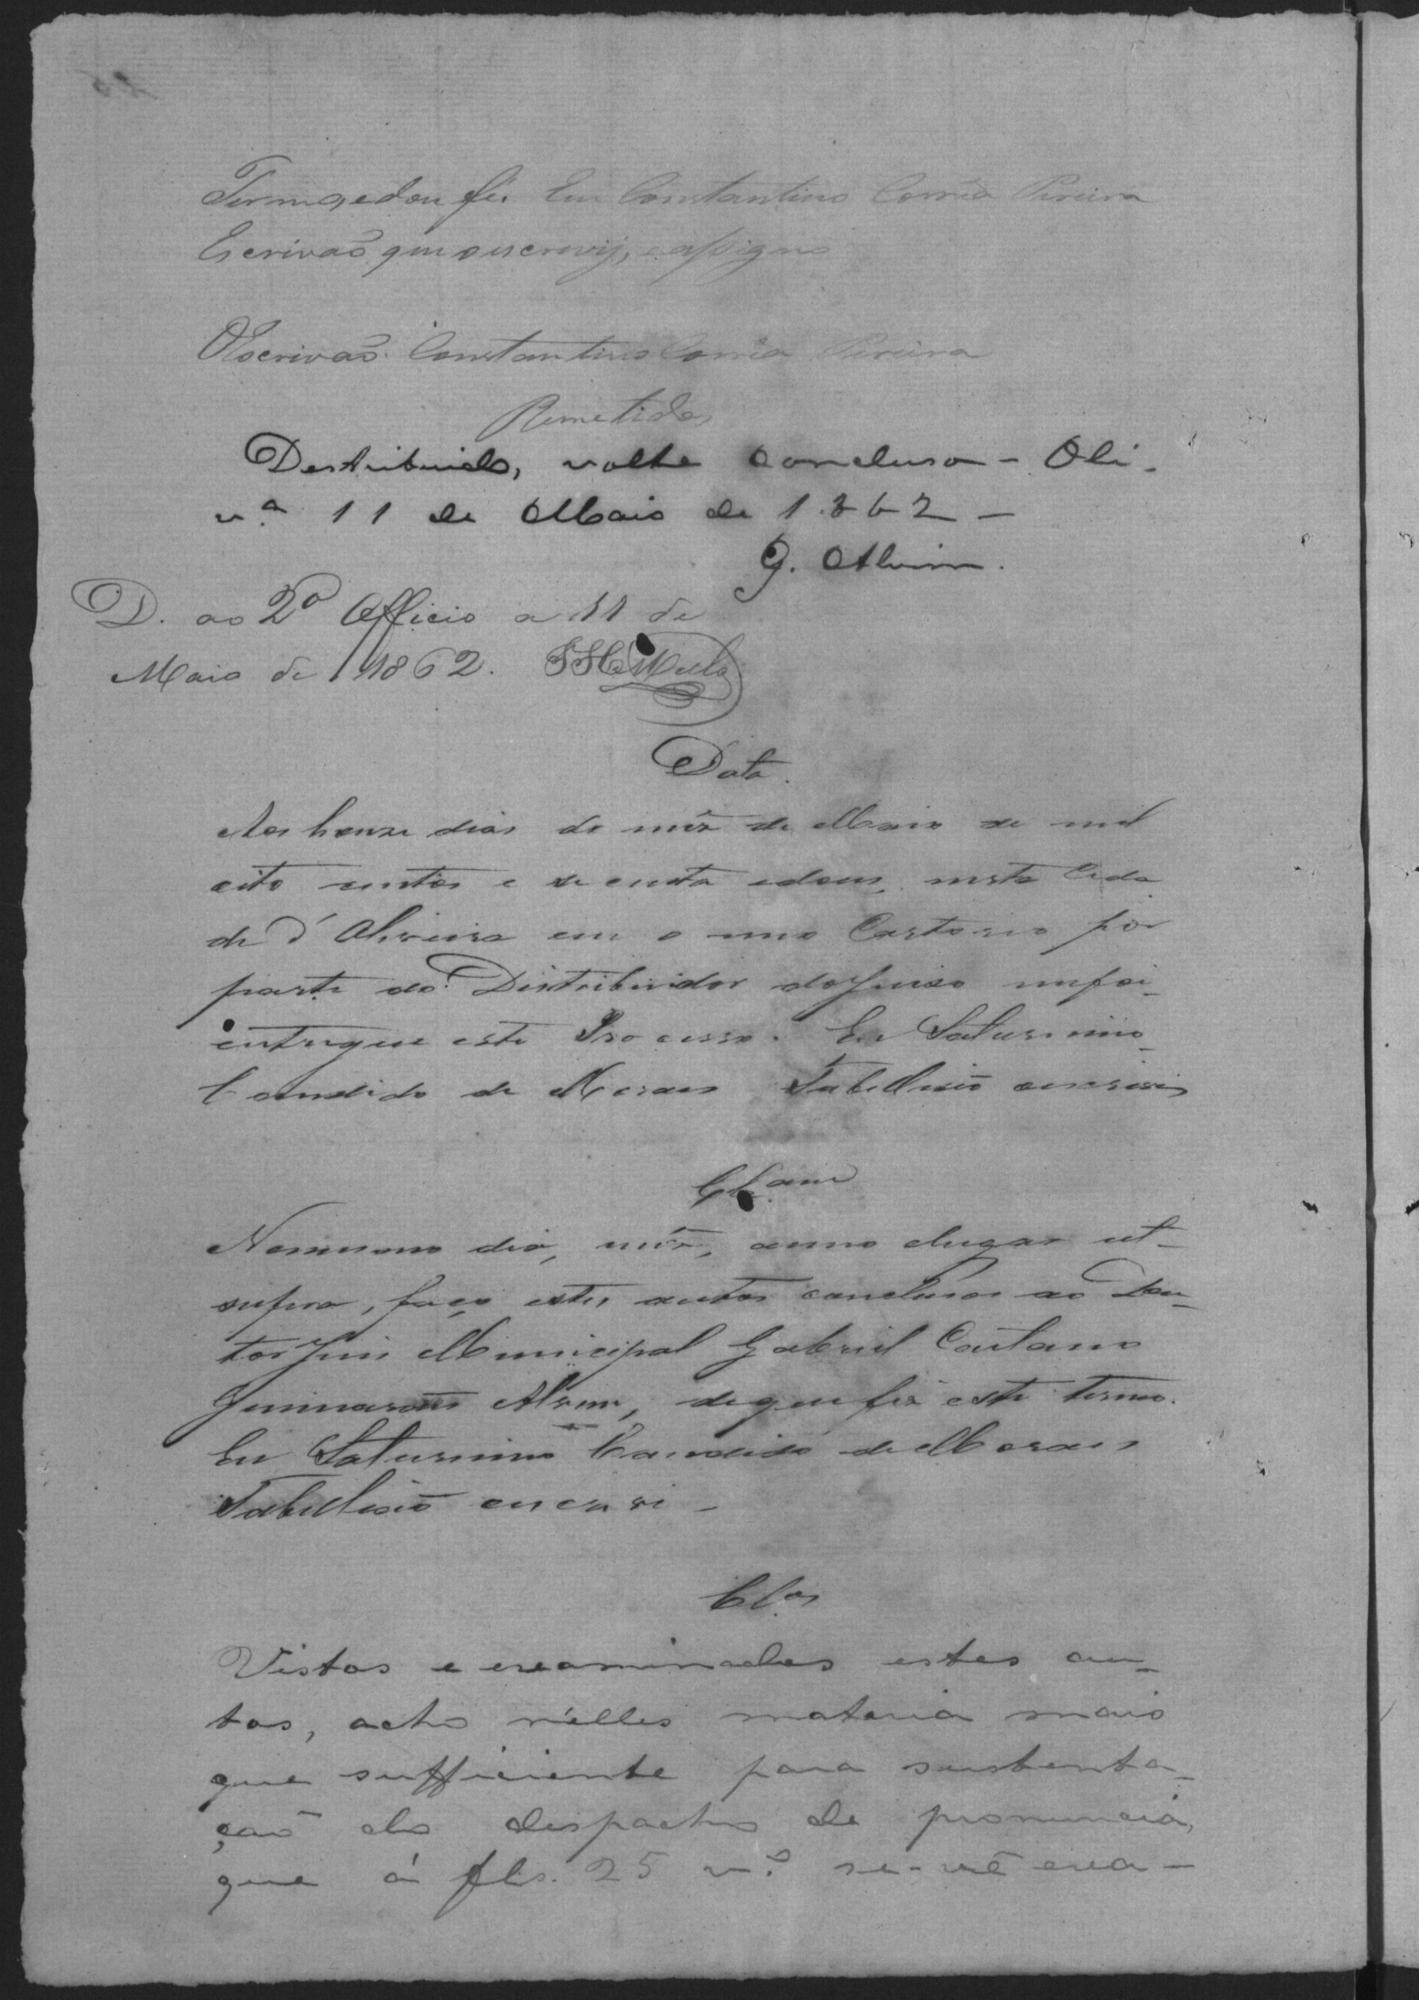 Termo edou fé. Eu Constantino Corrêa Pereira
Escrivaõ que o escrevij, e assigno
O Escrivaõ Constantino Corrêa Pereira
Remetidos
Destribuido, volte concluso – Oli-
vrª 11 de Maio de 1.862 –
G. Alvim.
D. ao 2º Officio a 11 de
Maio de 1862. Mello
Data.
Aos honze dias do mês de Maio de mil
oito centos e secenta edous, nesta Cida
de d'Oliveira em o meo Cartorio por
parte do Distribuidor doJuiso mefoi
entregue este Processo. Eu Saturnino
Candido de Moraes Tabelliaõ oescrevi
Clsam
Nomesmo dia, mês, anno elugar ut
supra, faço estes autos conclusos ao Dou-
tor Juis Municipal Gabriel Caetano
Guimarães Alvim, dequefiz este termo.
Eu Saturnino Candido de Moraes
Tabelliaõ oescrevi –
Clos
Vistos e examinados estes au-
tos, acho n'elles materia mais
que sufficiente para sustenta-
çaõ do despacho de pronuncia,
que á fls. 25 vº se-vê exa-